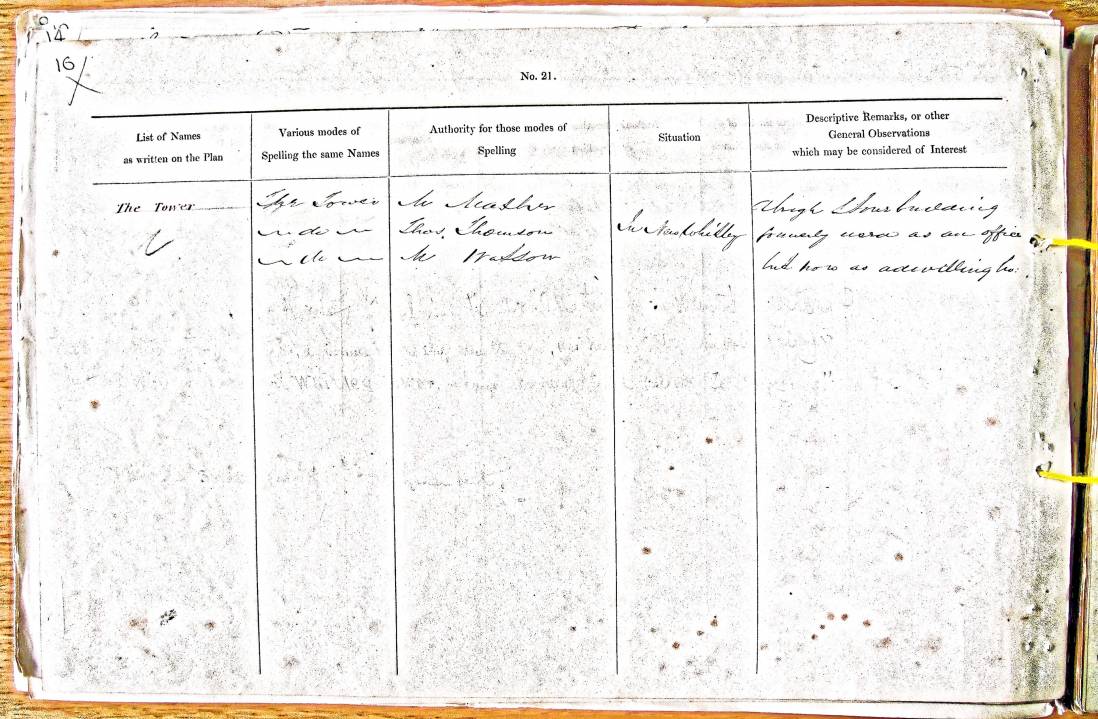 14
16
No. 21.
List of Names
as written on the Plan
Various modes of
Spelling the same Names
Authority for those modes of
Spelling
Situation
Descriptive Remarks, or other
General Observations
which may be considered of Interest
The Tower
The Tower
do
do
Mr Mather
Thos. Thomson
Mr Watson
In New Whitley
A high building
formerly used as an office
but now as a dwilling ho: